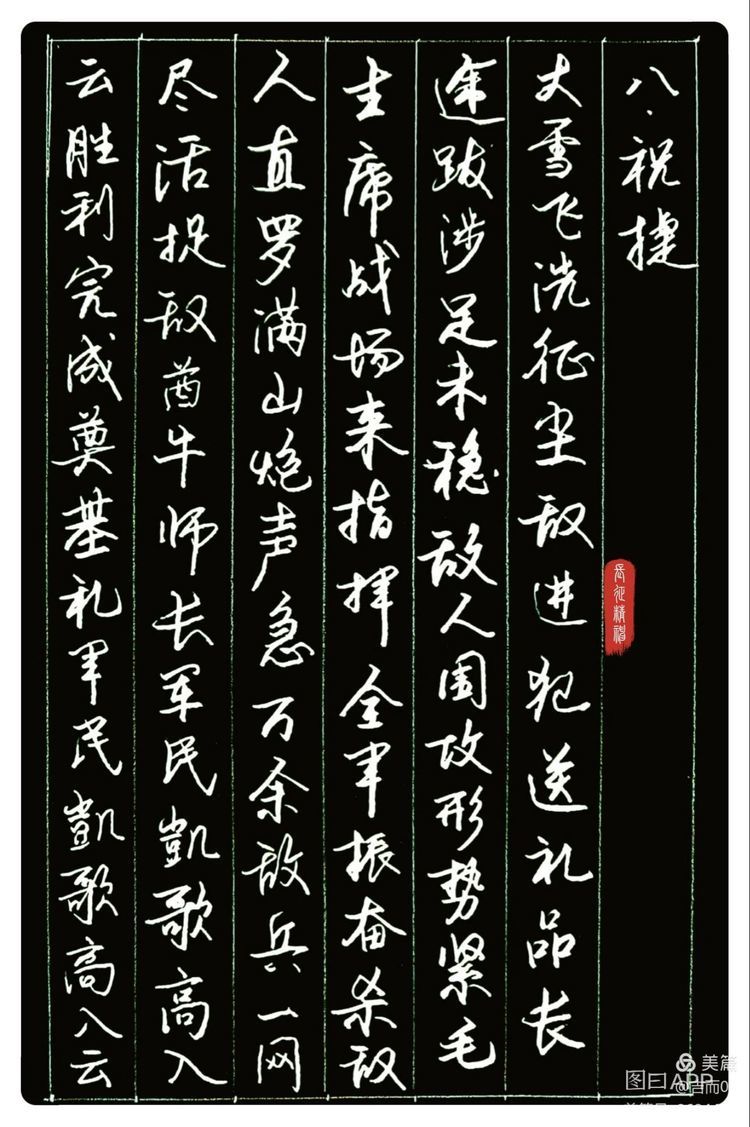 八、祝捷
大雪飞洗征尘敌进犯送礼品长
途跋涉足未稳敌人围攻形势紧毛
主席战场来指挥全军振奋杀敌
人直罗满山炮声急万余敌兵一网
尽活捉敌酋牛师长军民凱歌高入
云胜利完成奠基礼军民凱歌高入云
长征精神
美篇
图曰APP